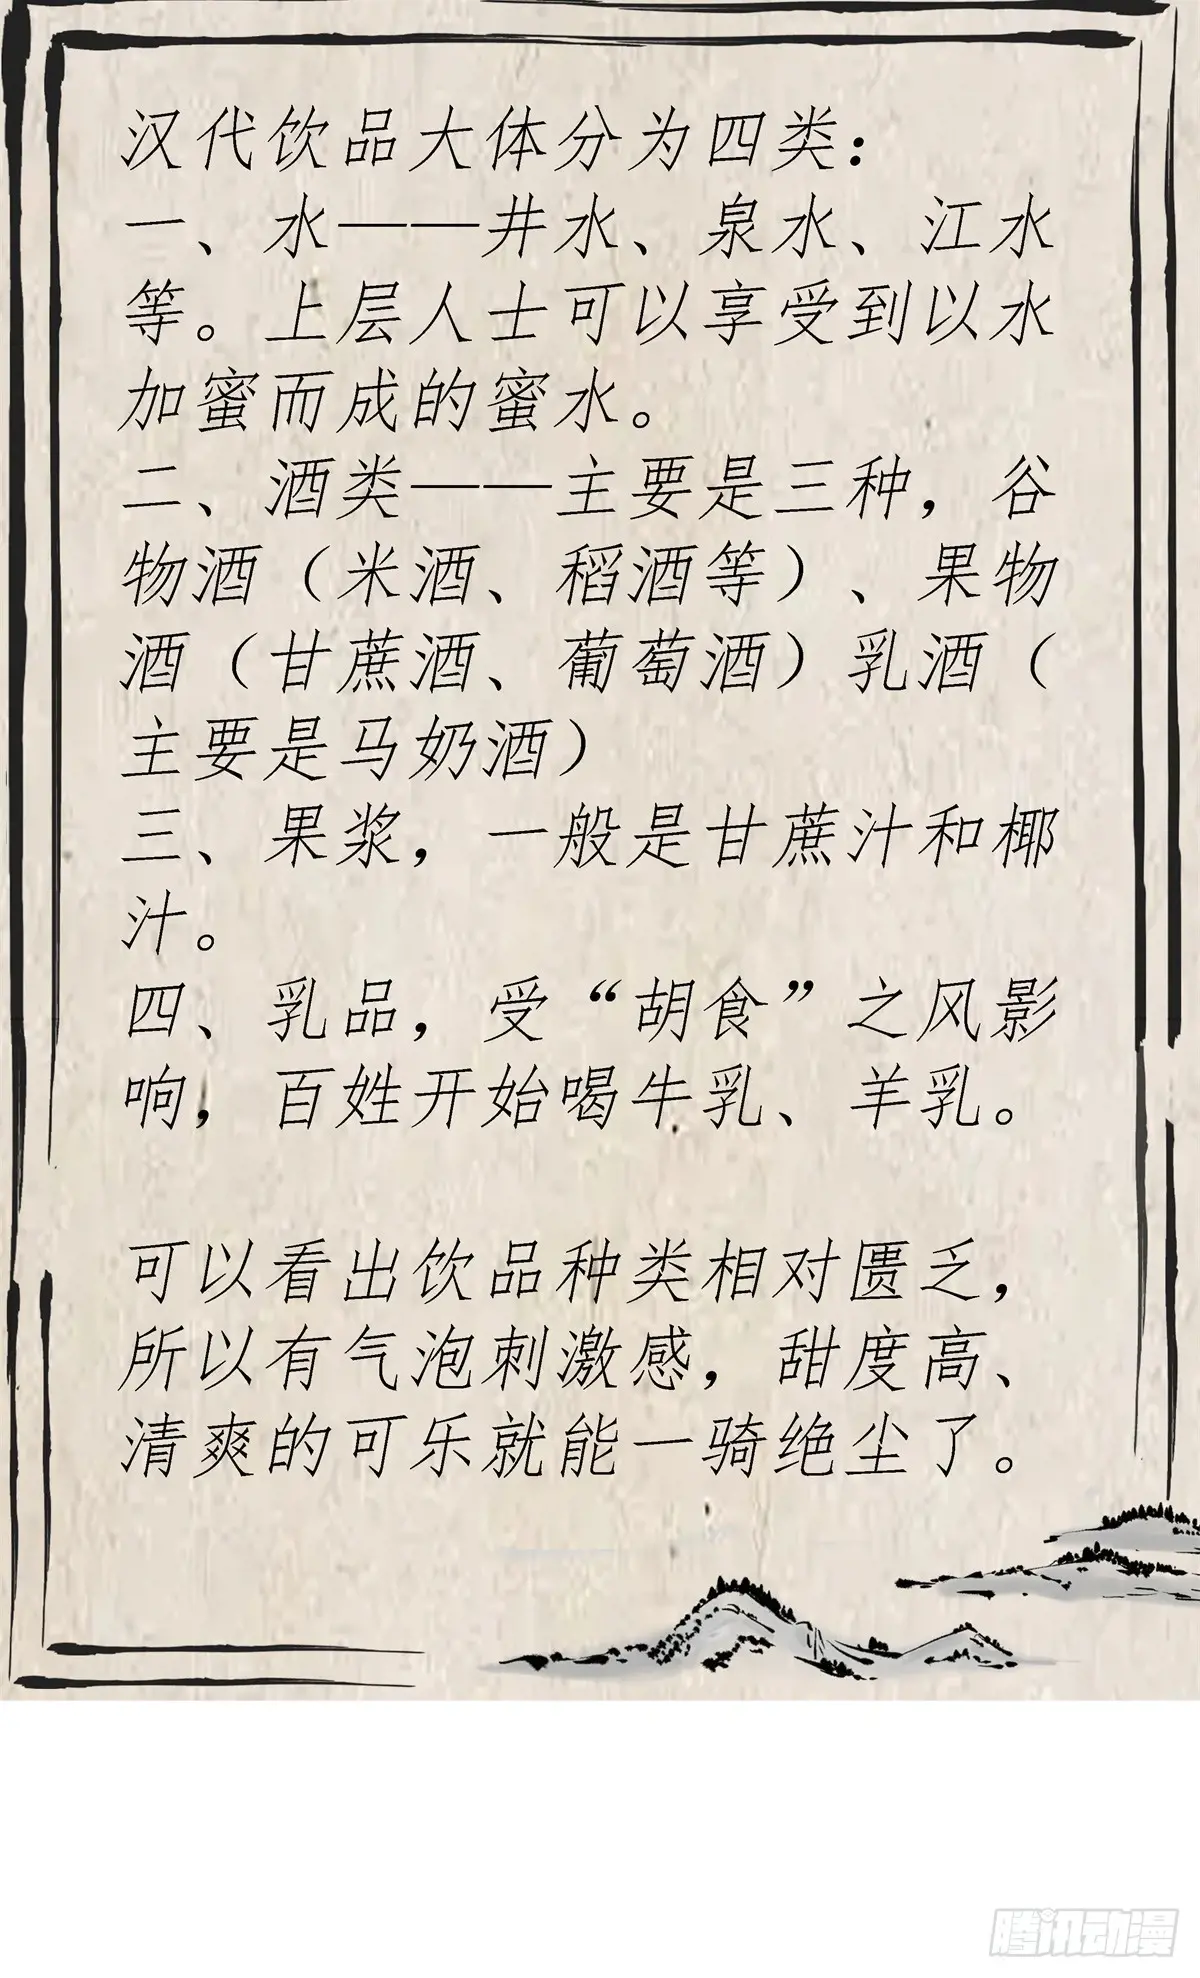 汉代饮品大体分为四类：
一、水——井水、泉水、江水
等。上层人士可以享受到以水
加蜜而成的蜜水。
二、酒类——主要是三种，谷
物酒（米酒、稻酒等）、果物
酒（甘蔗酒、葡萄酒）乳酒（
主要是马奶酒）
三、果浆，一般是甘蔗汁和椰
汁。
四、乳品，受“胡食”之风影
响，百姓开始喝牛乳、羊乳。
可以看出饮品种类相对匮乏，
所以有气泡刺激感，甜度高、
清爽的可乐就能一骑绝尘了。
腾讯动漫